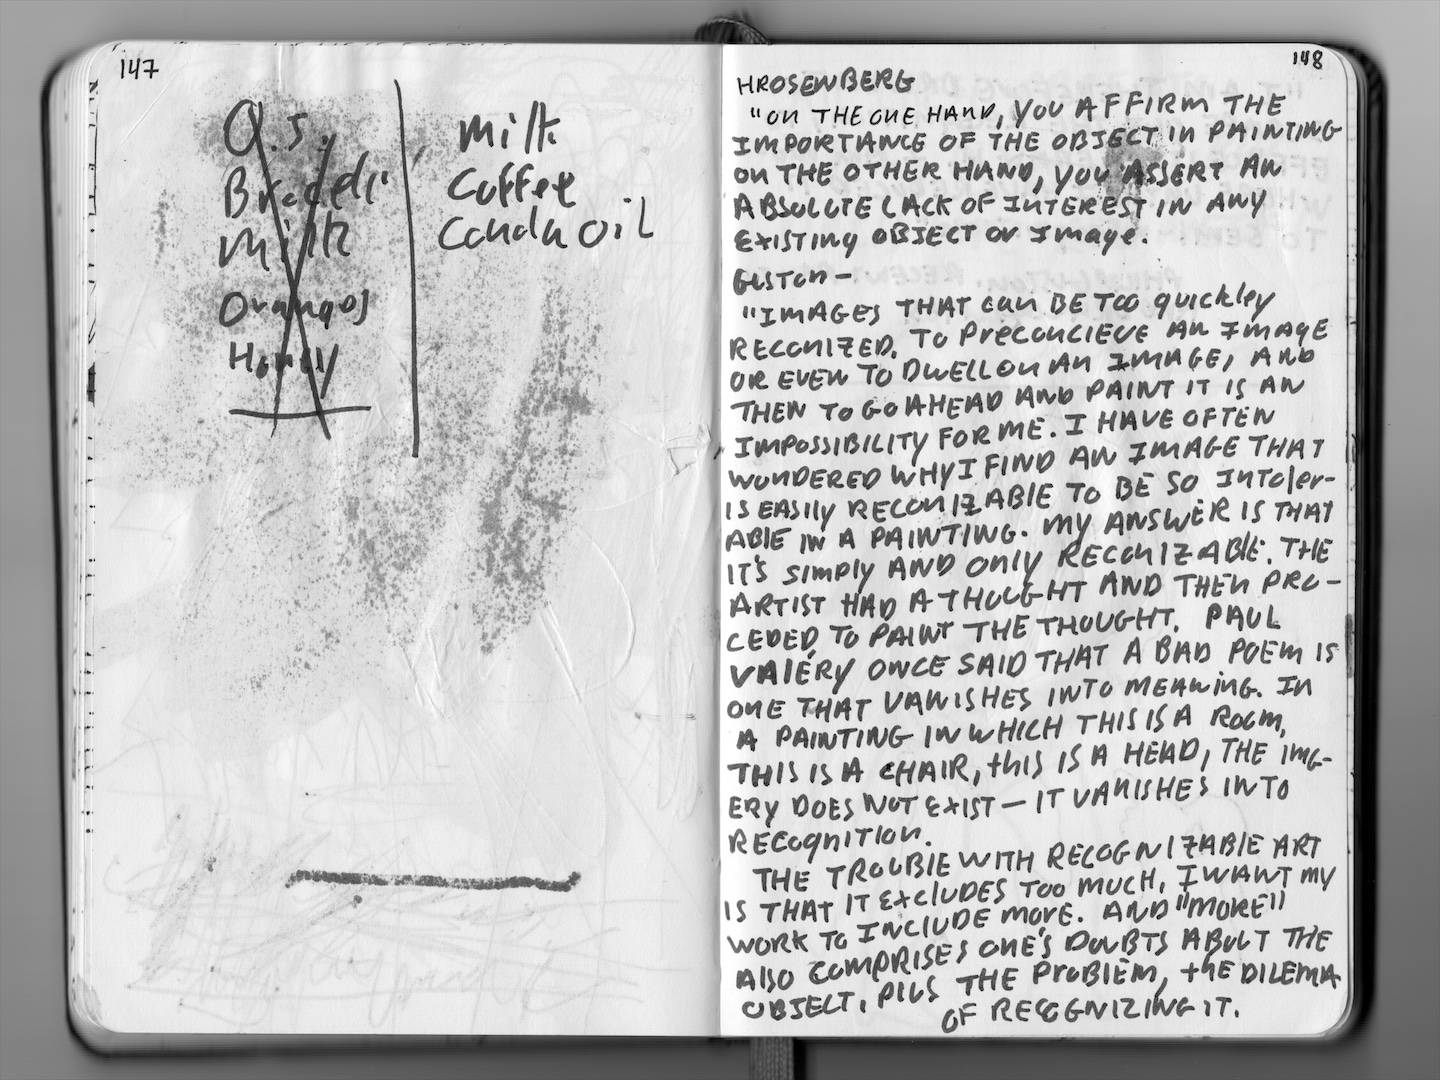 147
O.J.
Bread
Milk
Oranges
Honey
Milk
Coffee
oil
148
HROSENBERG
"ON THE ONE HAND, YOU AFFIRM THE
IMPORTANCE OF THE OBJECT IN PAINTING
ON THE OTHER HAND, YOU ASSERT AN
ABSOLUTE LACK OF INTEREST IN ANY
EXISTING OBJECT OR Image.
GUSTON —
"IMAGES THAT can BE TOO quickley
RECONIZED. TO PRECONCIEVE AN IMAGE
OR EVEN TO DWELL ON AN IMAGE, AND
THEN TO GO AHEAD AND PAINT IT IS AN
IMPOSSIBILITY FOR ME. I HAVE OFTEN
WONDERED WHY I FIND AN IMAGE THAT
IS EASILY RECONIZABLE TO BE SO INToler-
ABLE IN A PAINTING. MY ANSWER IS THAT
IT'S SIMPLY AND ONLY RECONIZABLE. THE
ARTIST HAD A THOUGHT AND THEN PRO-
CEDED TO PAINT THE THOUGHT. PAUL
VALÉRY ONCE SAID THAT A BAD POEM IS
ONE THAT VANISHES INTO MEANING. IN
A PAINTING IN WHICH THIS IS A ROOM,
THIS IS A CHAIR, tHIS IS A HEAD, THE IMG-
ERY DOES NOT EXIST — IT VANISHES INTO
RECOGNITION.
THE TROUBLE WITH RECOGNIZABLE ART
IS THAT IT EXCLUDES TOO MUCH, I WANT MY
WORK TO INCLUDE MORE. AND "MORE"
ALSO COMPRISES ONE'S DOUBTS ABOUT THE
OBJECT, PLUS THE PROBLEM, tHE DILEMA
OF RECOGNIZING IT.